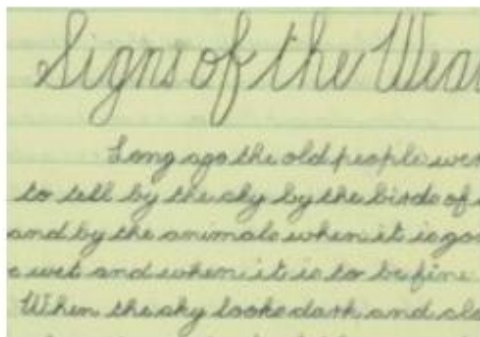 Signs of the Wea
Long ago the old people wer
to tell by the sky by the birds of
and by the animals when it is goi
wet and when it is to be fine
When the sky looks dark and clo